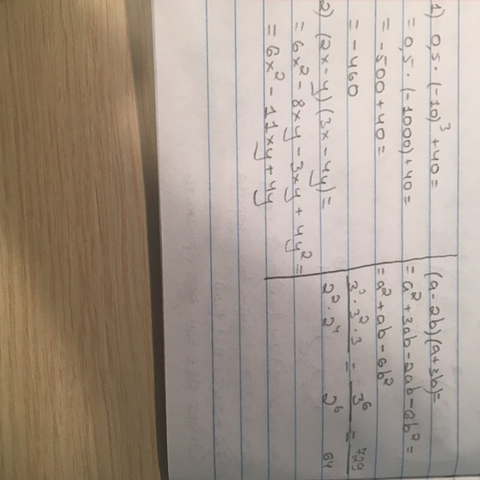 1) 0,5·(-10)³+40=
=0,5·(-1000)+40=
=-500+40=
=-460
2) (2x-y)(3x-4y)=
=6x²-8xy-3xy+4y²=
=6x²-11xy+4y
(a-2b)(a+3b)=
=a²+3ab-2ab-6b²=
=a²+ab-6b²
3³·3²·3 = 3⁶ = 729
2²·2⁴ 2⁶ 64